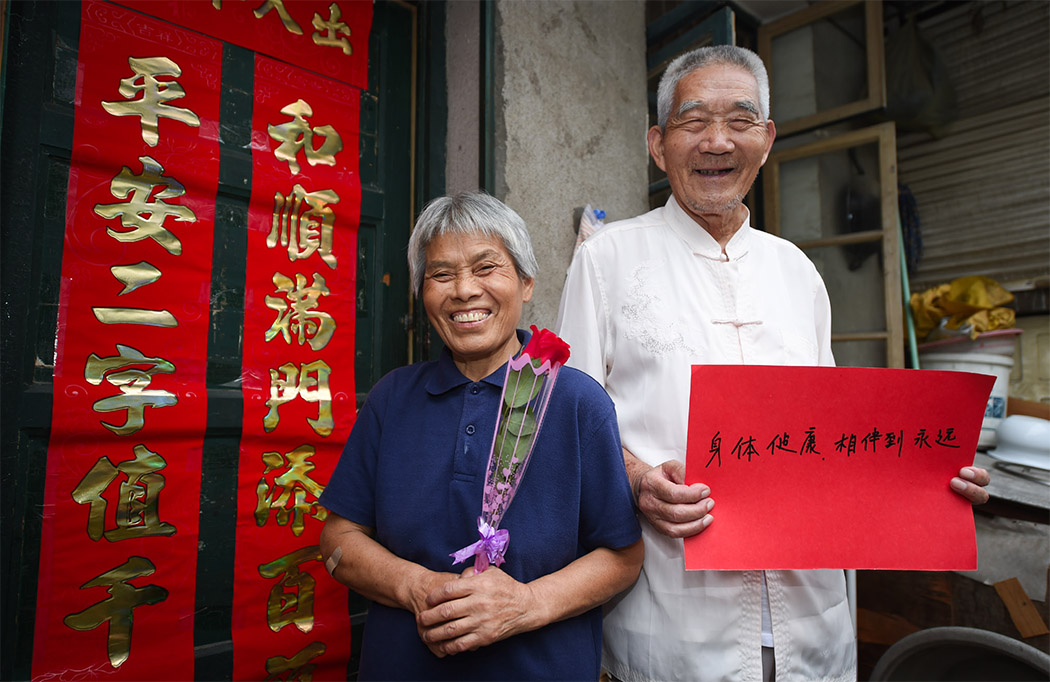 出入
和順满門添百
平安二字值千
身体健康、相伴到永远